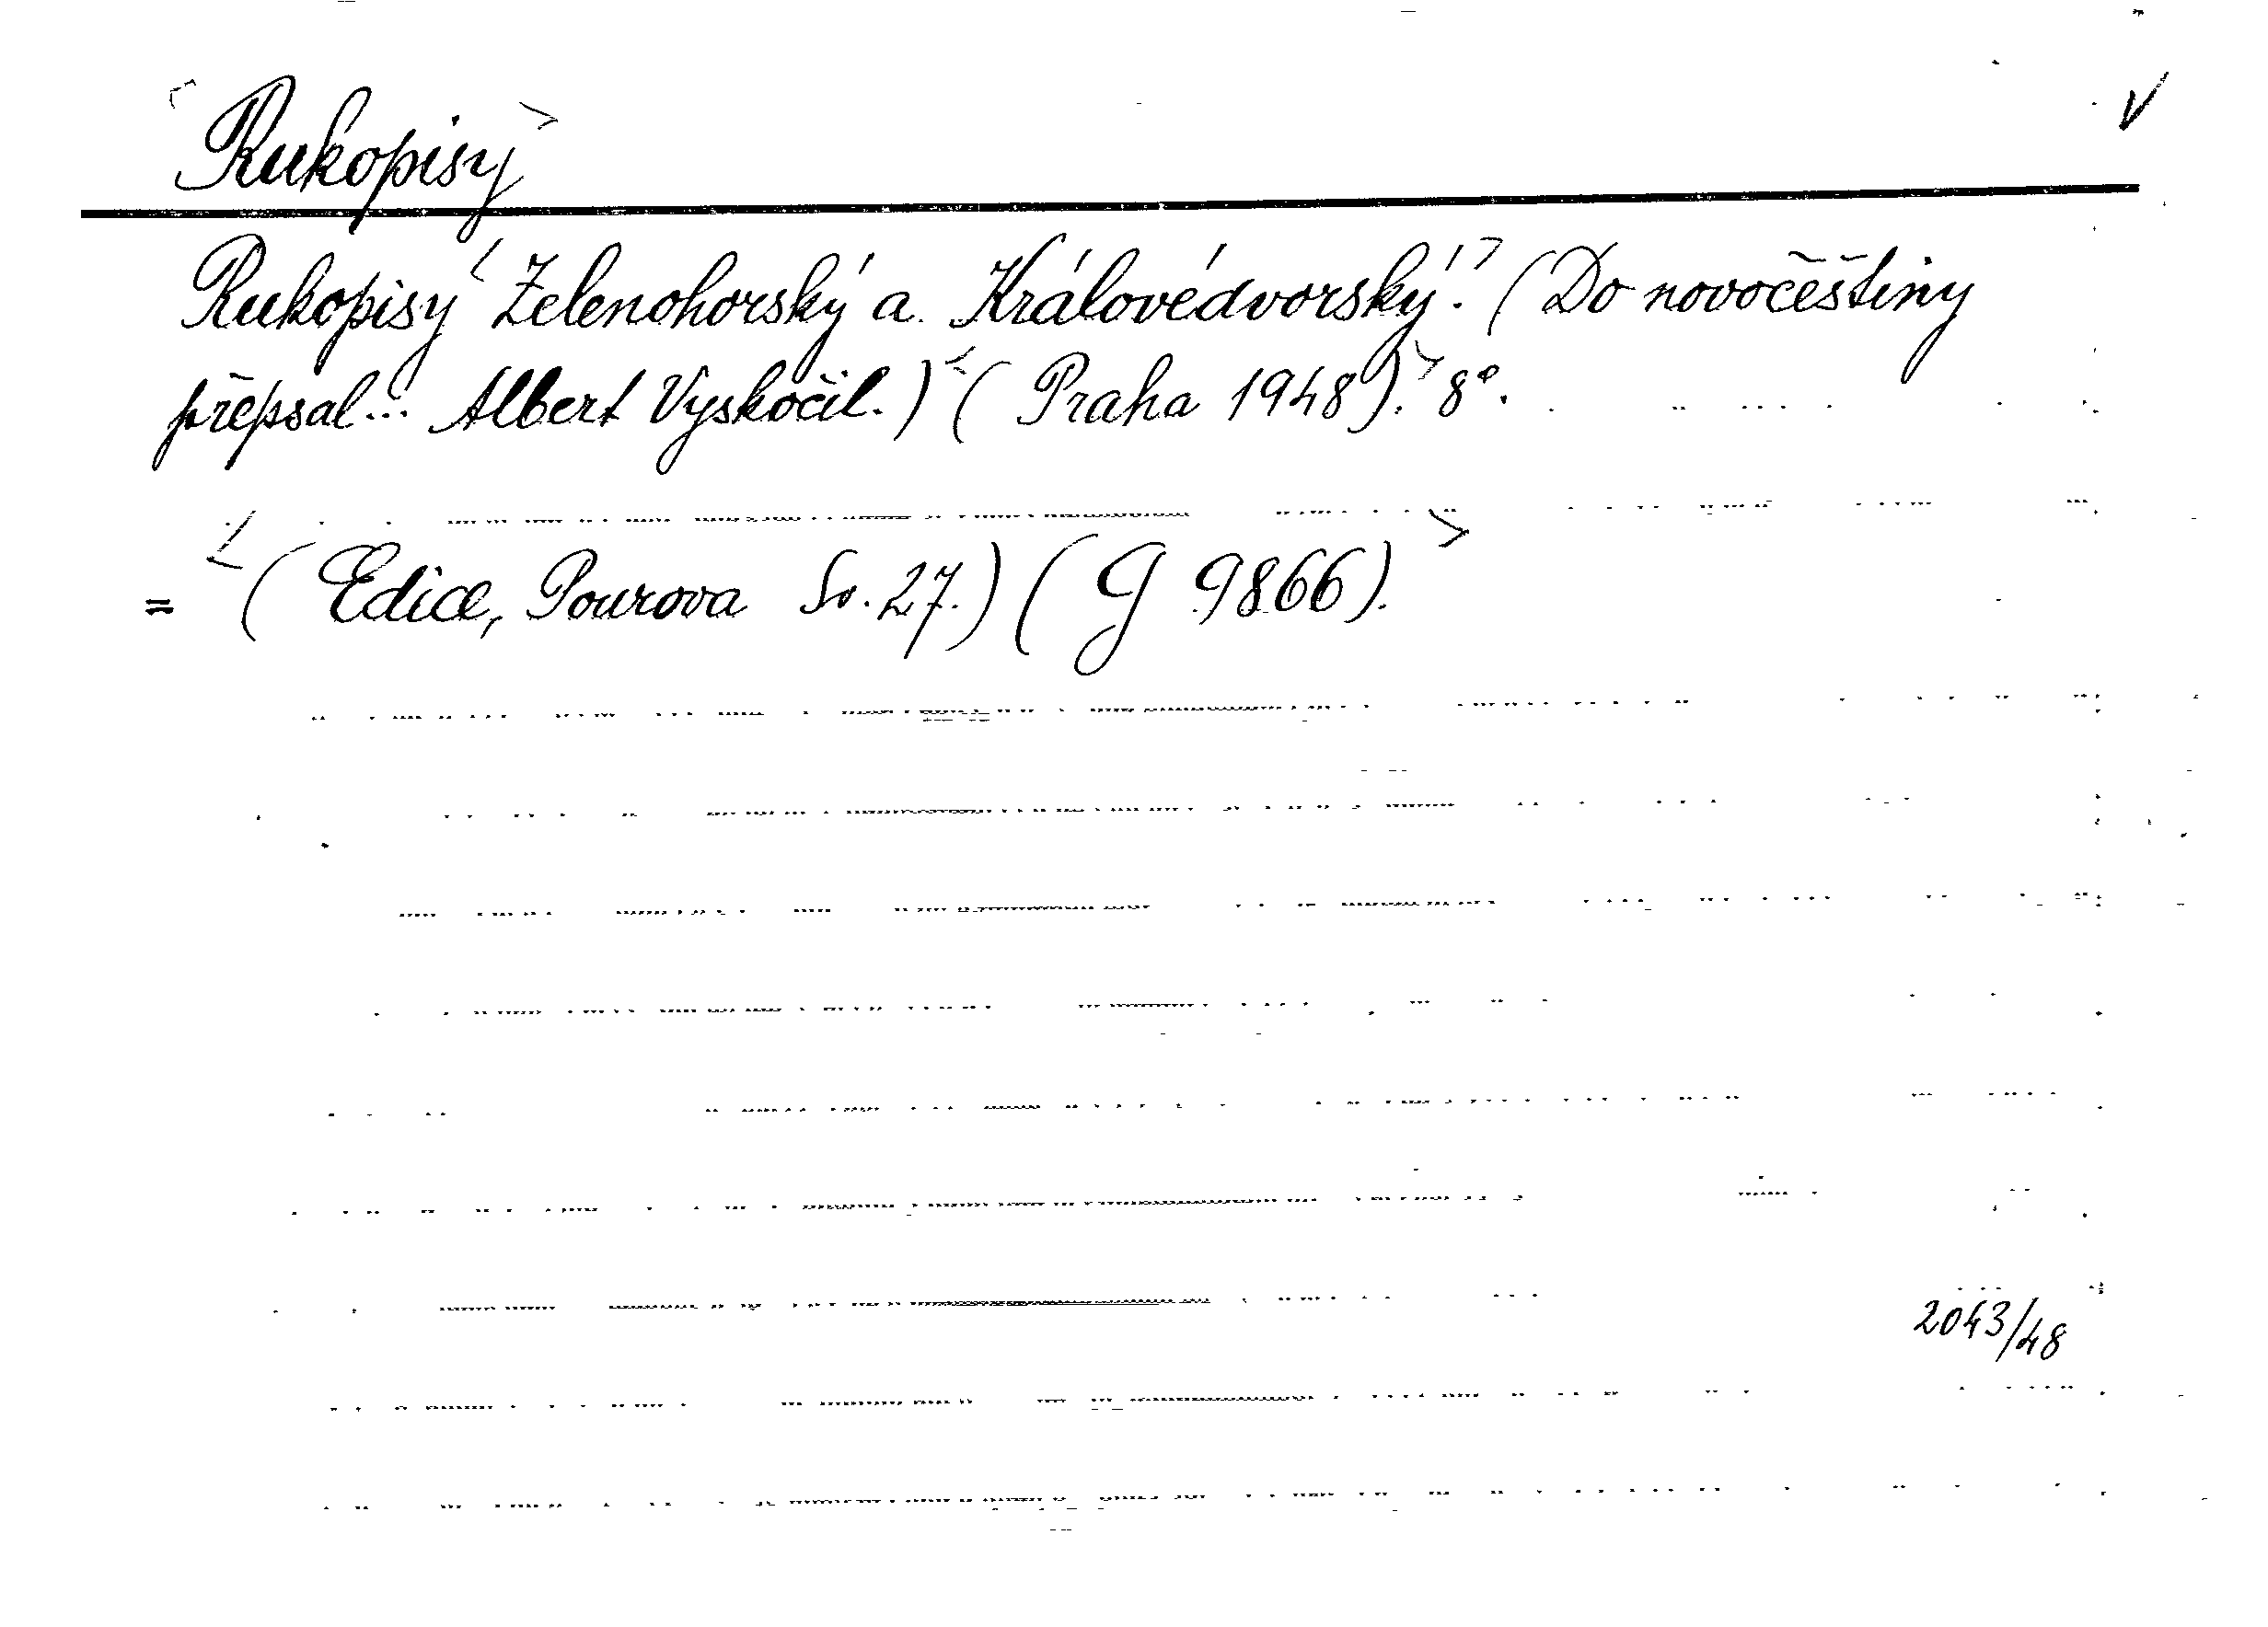 <Rukopisy> V
Rukopisy <Zelenohorský a Královédvorský.> (Do novočeštiny
přepsal... Albert Vyskočil.) <(Praha 1948).> 8°.
= <(Edice, Pourova Sv. 27.) (G 9866).>
2043/48